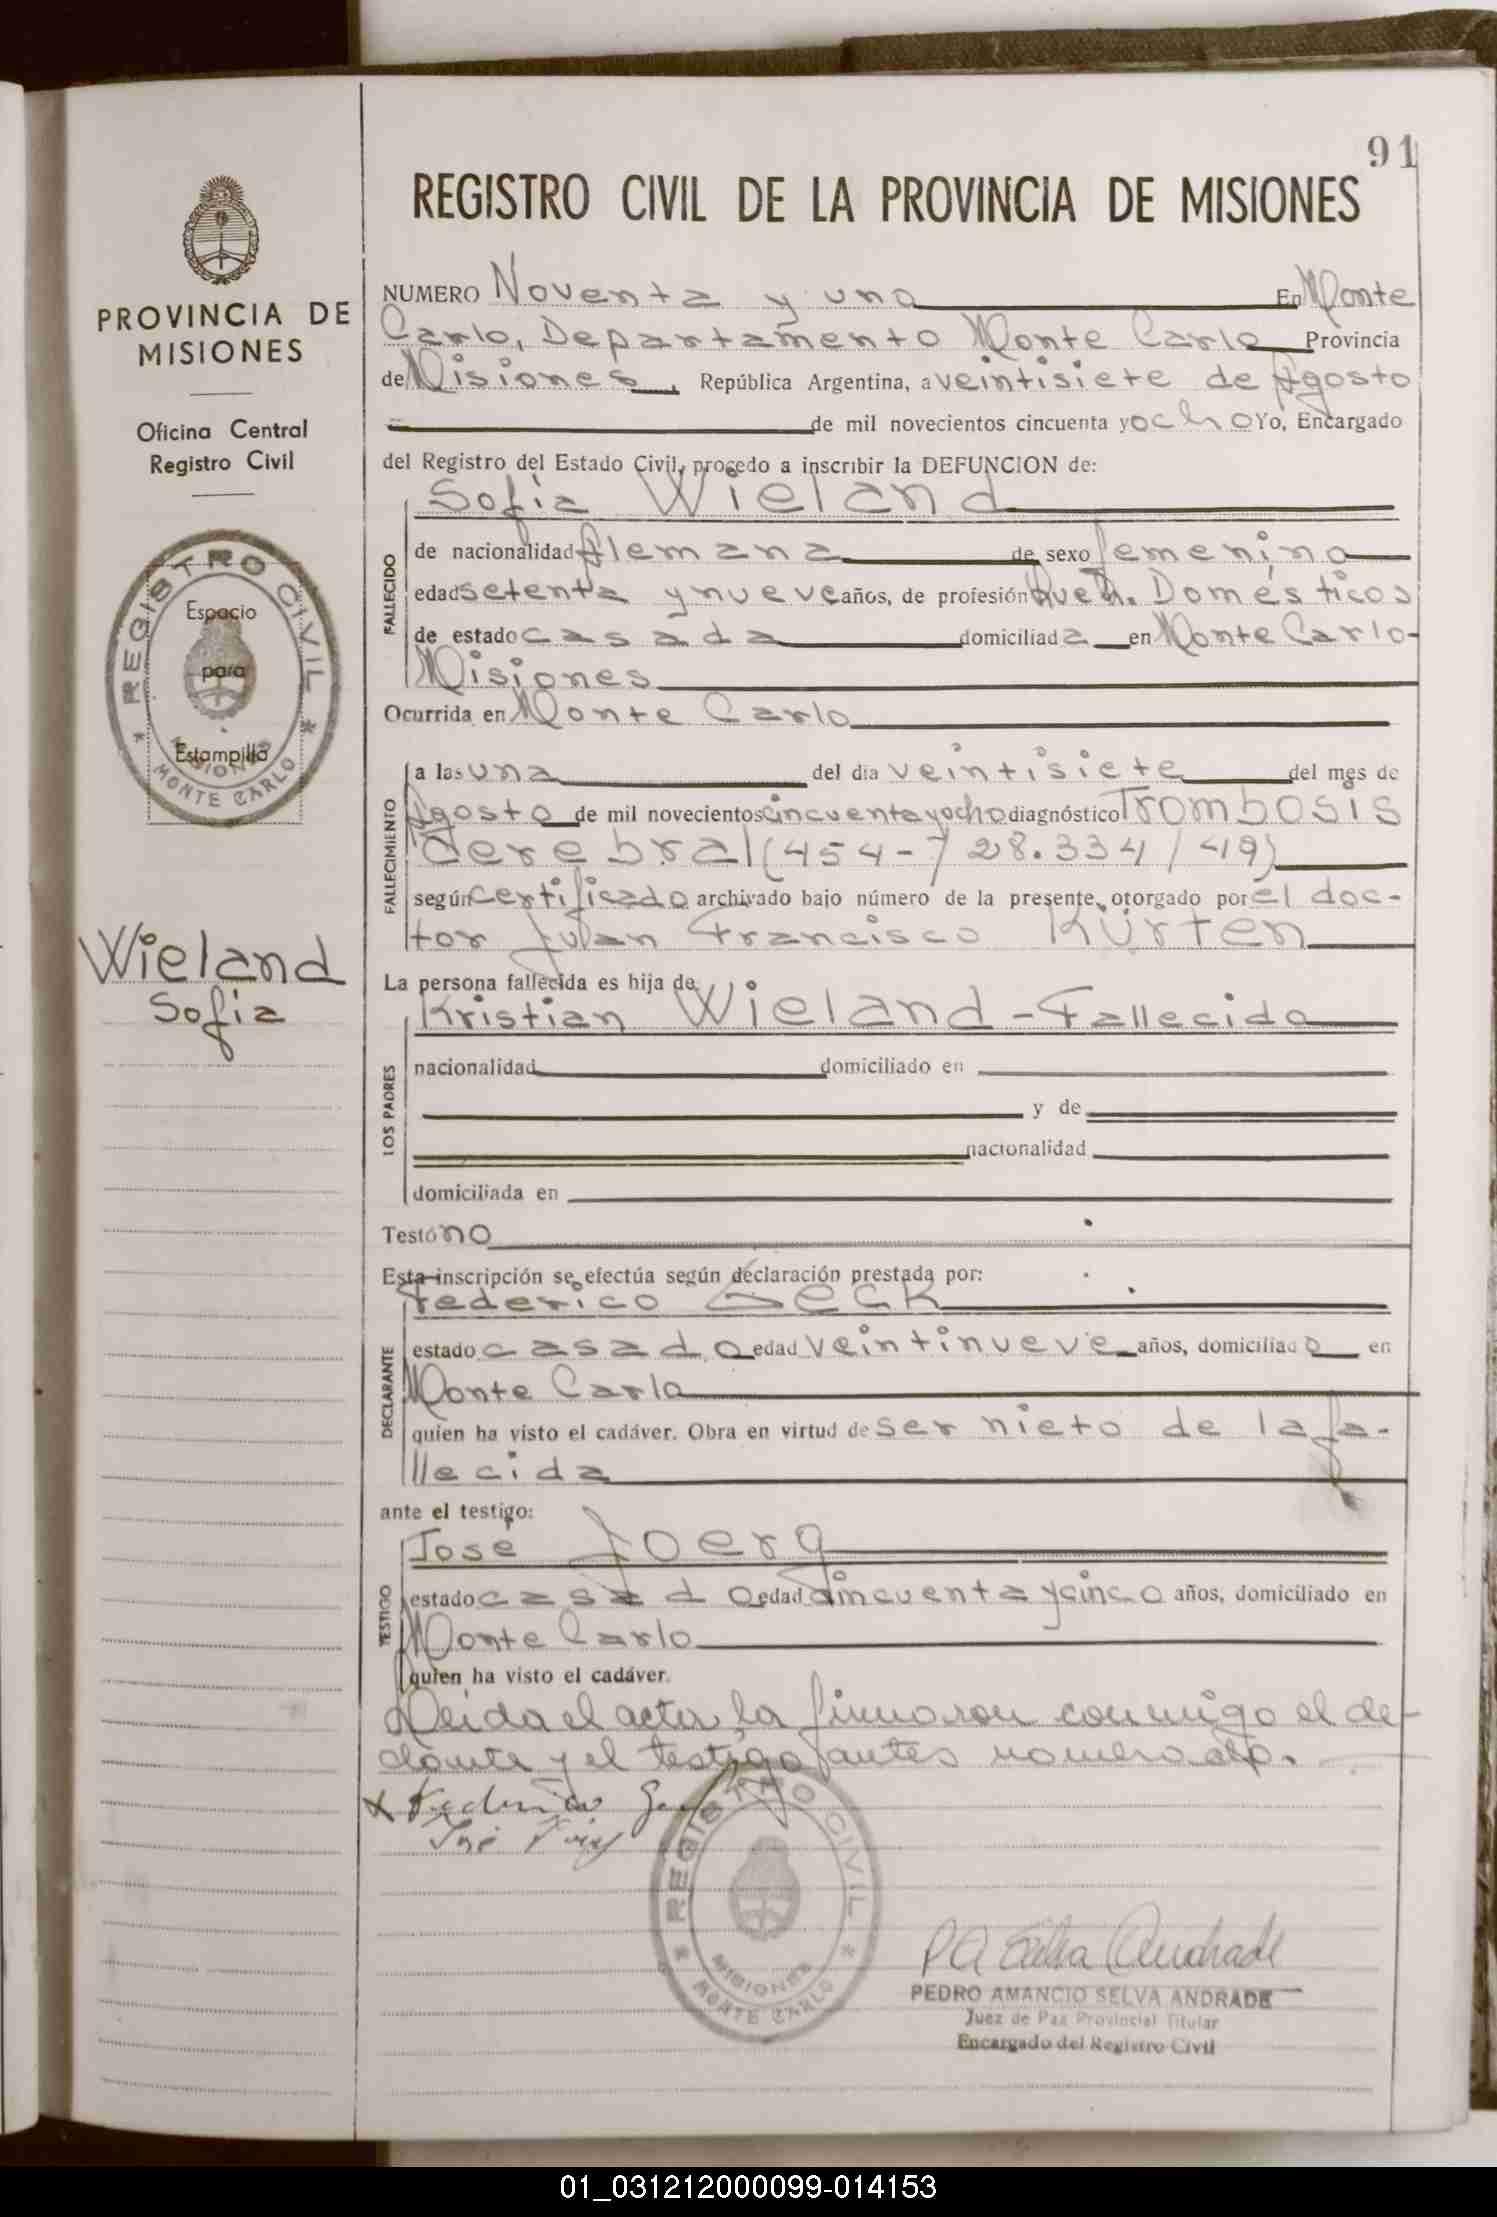 91
REGISTRO CIVIL DE LA PROVINCIA DE MISIONES
PROVINCIA DE
MISIONES
Oficina Central
Registro Civil
REGISTRO CIVIL
Espacio
para
Estampilla
MISIONES
MONTE CARLO
Wieland
Sofia
NUMERO Noventa y uno En Monte
Carlo, Departamento Monte Carlo Provincia
de Misiones, República Argentina, a veintisiete de Agosto
de mil novecientos cincuenta y ocho Yo, Encargado
del Registro del Estado Civil, procedo a inscribir la DEFUNCION de:
Sofia Wieland
FALLECIDO
de nacionalidad Alemana de sexo femenino
edad setenta y nueve años, de profesión Queh. Domésticos
de estado casada domiciliada en Monte Carlo-
Misiones
Ocurrida en Monte Carlo
FALLECIMIENTO
a las una del dia veintisiete del mes de
Agosto de mil novecientos cincuenta y ocho diagnóstico Trombosis
Cerebral (454-728.334/49)
según certificado archivado bajo número de la presente, otorgado por el doc-
tor Julan Francisco Kürten
La persona fallecida es hija de
LOS PADRES
Kristian Wieland - Fallecido
nacionalidad domiciliado en
y de
nacionalidad
domiciliada en
Testó no
Esta inscripción se efectúa según declaración prestada por:
DECLARANTE
Federico Geck
estado casado edad veintinueve años, domiciliado en
Monte Carlo
quien ha visto el cadáver. Obra en virtud de ser nieto de la fa-
llecida
ante el testigo:
TESTIGO
Jose Joerg
estado casado edad cincuenta y cinco años, domiciliado en
Monte Carlo
quien ha visto el cadáver.
Leida el acta, la firmaron conmigo el de-
clarante y el testigo antes nomerado.
x Federico
José
REGISTRO CIVIL
MISIONES
MONTE CARLO
PA Selva Andrade
PEDRO AMANCIO SELVA ANDRADE
Juez de Paz Provincial Titular
Encargado del Registro Civil
01_031212000099-014153